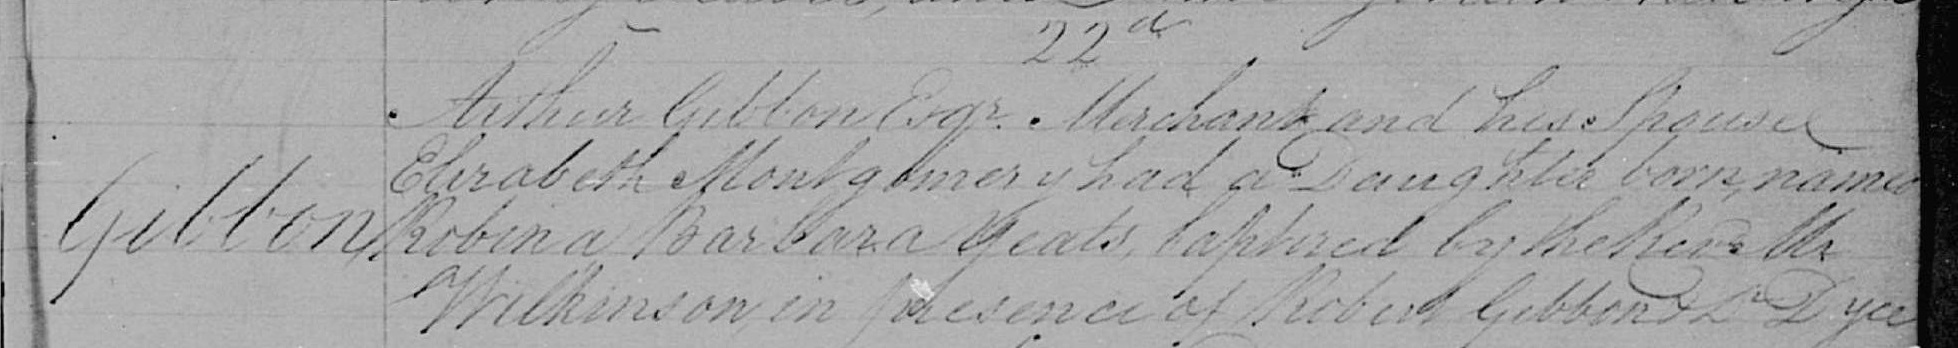 22d
Arthur Gibbon Esqr. Merchant and his Spouse
Elizabeth Montgomery had a Daughter born, named
Gibbon Robina Barbara Yeats, baptized by the Revd. Mr
Wilkinson, in presence of Robert Gibbon & Dr Dyce